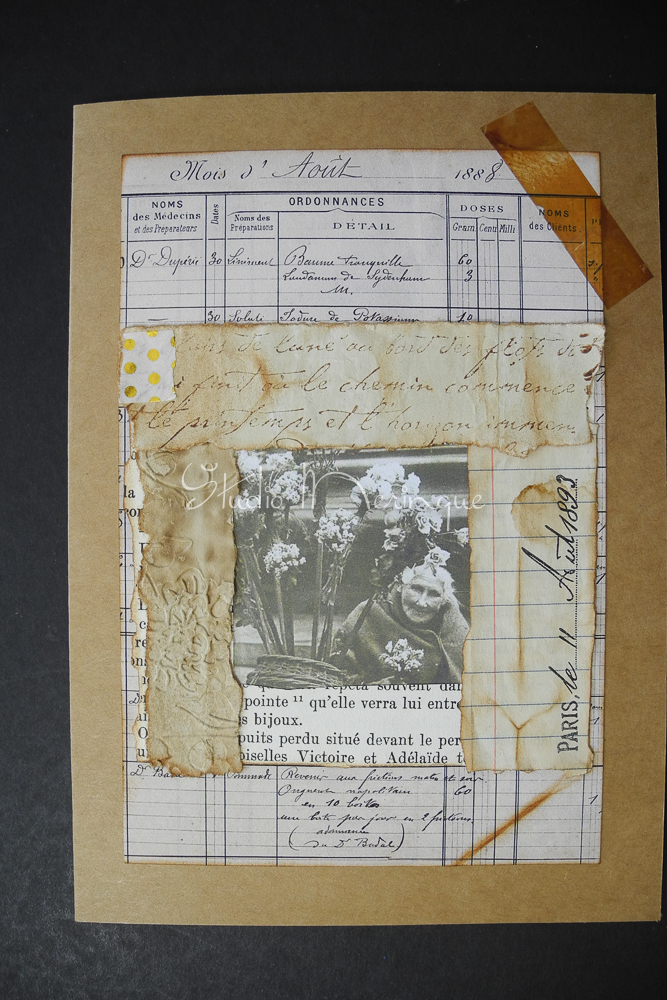 Mois d' Août 1888
NOMS des Médecins et des Preparateurs
Dates
ORDONNANCES
Noms des Préparations
DÉTAIL
DOSES
Gram Cent Mill
NOMS des Clients
Dr 30 Liniment Baume tranquille 60
Laudanum de Sydenham 3
M.
30 Soluti Iodure de Potassium 10
de au bord des
finit où le chemin commence
le printemps et l'horizon
Studio
PARIS, le 11 Août 1893
répéta souvent dan
pointe 11 qu'elle verra lui entre
s bijoux.
puits perdu situé devant le per
oiselles Victoire et Adélaïde t
Pommade Revenir aux frictions matin et soir
Onguent napolitain 60
en 10 boites
une boite par jour en 2 frictions
(
du Dr Badal)